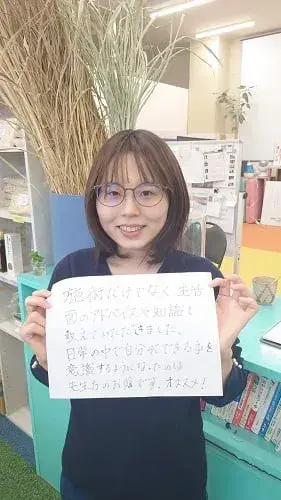 施術だけでなく生活
面のアドバイスや知識も
教えていただきました。
日常の中で自分ができる事を
意識するようになったのは
先生方のお陰です。オススメ!